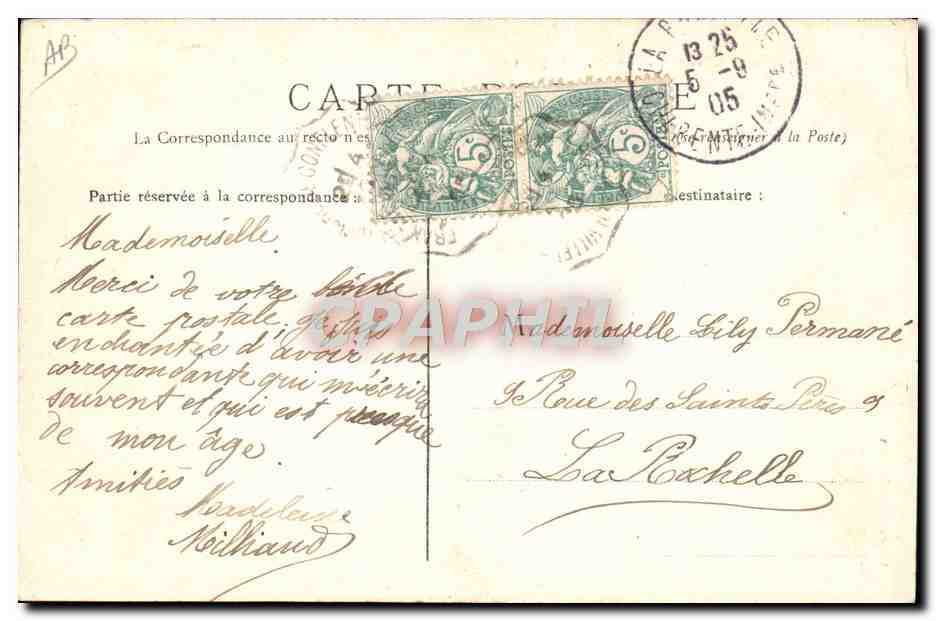 AB
LA ROCHELLE
13 25
5 - 9
05
CHARENTE-INFRE
CARTE POSTALE
La Correspondance au recto n'es (se renseigner à la Poste)
Partie réservée à la correspondance : destinataire :
5c 5c
POSTES
Mademoiselle
Merci de votre belle
carte postale, je suis
enchantée d'avoir une
correspondante qui m'écrira
souvent et qui est presque
de mon âge
Amitiés
Madeleine
Milhaud
Mademoiselle Lily Permané
9 Rue des Saints Pères 9
La Rochelle
CPAPHIL